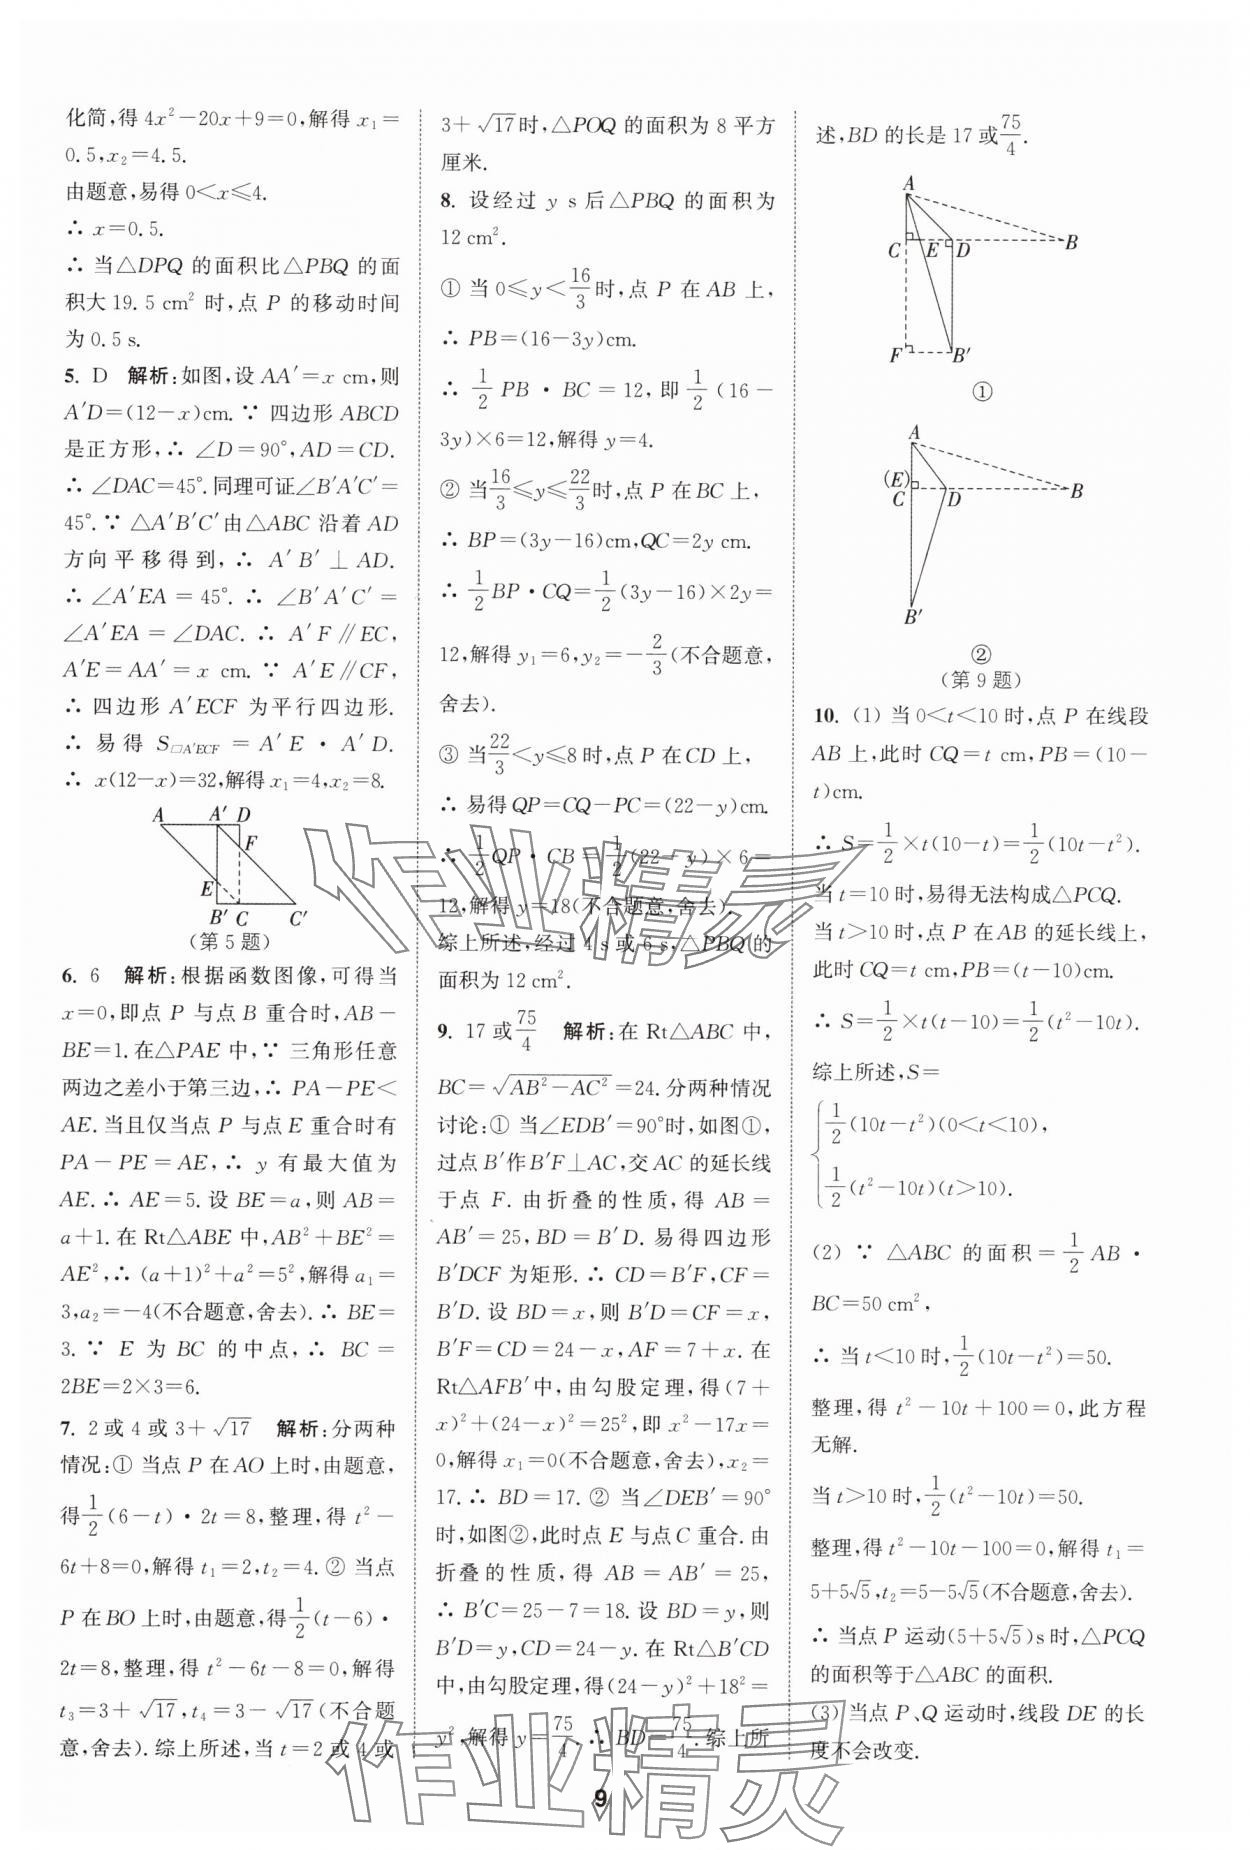 化简,得 4x²-20x+9=0,解得 x₁=
0.5,x₂=4.5.
由题意,易得 0<x≤4.
∴ x=0.5.
∴ 当△DPQ 的面积比△PBQ 的面
积大 19.5 cm² 时,点 P 的移动时间
为 0.5 s.
5. D 解析:如图,设 AA′=x cm,则
A′D=(12-x)cm. ∵ 四边形 ABCD
是正方形,∴ ∠D=90°,AD=CD.
∴ ∠DAC=45°.同理可证∠B′A′C′=
45°. ∵ △A′B′C′由△ABC 沿着 AD
方向平移得到,∴ A′B′⊥AD.
∴ ∠A′EA=45°. ∴ ∠B′A′C′=
∠A′EA=∠DAC. ∴ A′F∥EC,
A′E=AA′=x cm. ∵ A′E∥CF,
∴ 四边形 A′ECF 为平行四边形.
∴ 易得 S▱A′ECF=A′E·A′D.
∴ x(12-x)=32,解得 x₁=4,x₂=8.
A A′ D
F
E
B′ C C′
(第 5 题)
6. 6 解析:根据函数图像,可得当
x=0,即点 P 与点 B 重合时,AB-
BE=1.在△PAE 中,∵ 三角形任意
两边之差小于第三边,∴ PA-PE<
AE.当且仅当点 P 与点 E 重合时有
PA-PE=AE,∴ y 有最大值为
AE. ∴ AE=5.设 BE=a,则 AB=
a+1.在 Rt△ABE 中,AB²+BE²=
AE²,∴ (a+1)²+a²=5²,解得 a₁=
3,a₂=-4(不合题意,舍去). ∴ BE=
3. ∵ E 为 BC 的中点,∴ BC=
2BE=2×3=6.
7. 2 或 4 或 3+√17 解析:分两种
情况:① 当点 P 在 AO 上时,由题意,
得1/2(6-t)·2t=8,整理,得 t²-
6t+8=0,解得 t₁=2,t₂=4. ② 当点
P 在 BO 上时,由题意,得1/2(t-6)·
2t=8,整理,得 t²-6t-8=0,解得
t₃=3+√17,t₄=3-√17(不合题
意,舍去).综上所述,当 t=2 或 4 或
3+√17时,△POQ 的面积为 8 平方
厘米.
8. 设经过 y s 后△PBQ 的面积为
12 cm².
① 当 0≤y<16/3时,点 P 在 AB 上,
∴ PB=(16-3y)cm.
∴ 1/2 PB·BC=12,即1/2(16-
3y)×6=12,解得 y=4.
② 当16/3≤y≤22/3时,点 P 在 BC 上,
∴ BP=(3y-16)cm,QC=2y cm.
∴ 1/2 BP·CQ=1/2(3y-16)×2y=
12,解得 y₁=6,y₂=-2/3(不合题意,
舍去).
③ 当22/3<y≤8 时,点 P 在 CD 上,
∴ 易得 QP=CQ-PC=(22-y)cm.
∴ 1/2 QP·CB=1/2(22-y)×6=
12,解得 y=18(不合题意,舍去).
综上所述,经过 4 s 或 6 s,△PBQ 的
面积为 12 cm².
9. 17 或75/4 解析:在 Rt△ABC 中,
BC=√(AB²-AC²)=24.分两种情况
讨论:① 当∠EDB′=90°时,如图①,
过点 B′作 B′F⊥AC,交 AC 的延长线
于点 F.由折叠的性质,得 AB=
AB′=25,BD=B′D.易得四边形
B′DCF 为矩形. ∴ CD=B′F,CF=
B′D.设 BD=x,则 B′D=CF=x,
B′F=CD=24-x,AF=7+x.在
Rt△AFB′中,由勾股定理,得(7+
x)²+(24-x)²=25²,即 x²-17x=
0,解得 x₁=0(不合题意,舍去),x₂=
17. ∴ BD=17. ② 当∠DEB′=90°
时,如图②,此时点 E 与点 C 重合.由
折叠的性质,得 AB=AB′=25,
∴ B′C=25-7=18.设 BD=y,则
B′D=y,CD=24-y.在 Rt△B′CD
中,由勾股定理,得(24-y)²+18²=
y²,解得 y=75/4. ∴ BD=75/4.综上所
述,BD 的长是 17 或75/4.
A
C E D B
F B′
①
A
(E)
C D B
B′
②
(第 9 题)
10. (1) 当 0<t<10 时,点 P 在线段
AB 上,此时 CQ=t cm,PB=(10-
t)cm.
∴ S=1/2×t(10-t)=1/2(10t-t²).
当 t=10 时,易得无法构成△PCQ.
当 t>10 时,点 P 在 AB 的延长线上,
此时 CQ=t cm,PB=(t-10)cm.
∴ S=1/2×t(t-10)=1/2(t²-10t).
综上所述,S=
{1/2(10t-t²)(0<t<10),
1/2(t²-10t)(t>10).
(2) ∵ △ABC 的面积=1/2 AB·
BC=50 cm²,
∴ 当 t<10 时,1/2(10t-t²)=50.
整理,得 t²-10t+100=0,此方程
无解.
当 t>10 时,1/2(t²-10t)=50.
整理,得 t²-10t-100=0,解得 t₁=
5+5√5,t₂=5-5√5(不合题意,舍去).
∴ 当点 P 运动(5+5√5)s 时,△PCQ
的面积等于△ABC 的面积.
(3) 当点 P、Q 运动时,线段 DE 的长
度不会改变.
9
作业精灵
作业精灵